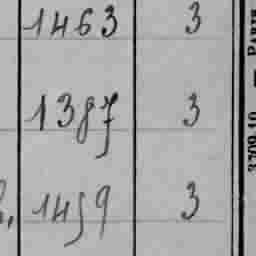 1463 3
1387 3
1459 3
3709 10 — PARIS